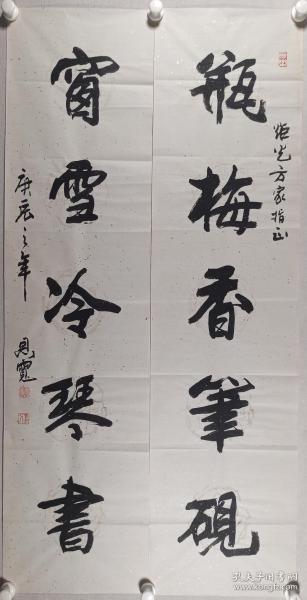 瓶梅香筆硯
方家指正
窗雪冷琴書
庚辰之年
孔夫子旧书网